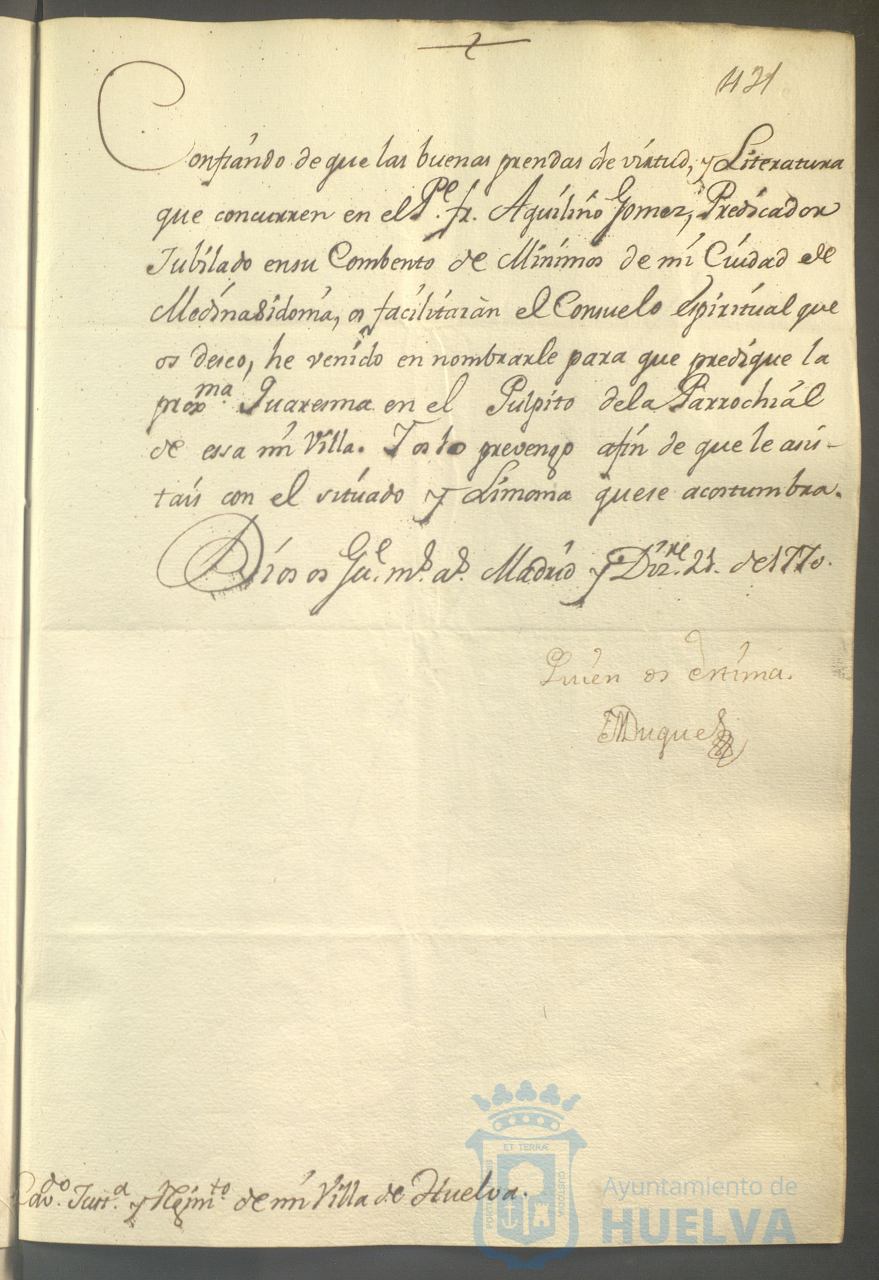 421
Confiando de que las buenas prendas de virtud, y Literatura
que concurren en el Pe. fr. Aquilino Gomez, Predicador
Jubilado ensu Combento de Minimos de mi Ciudad de
Medinasidonia, os facilitaràn el Consuelo Espiritual que
os deseo, he venido en nombrarle para que predique la
proxma. Quaresma en el Pulpito dela Parrochial
de essa mi Villa. Y os lo prevengo afin de que le asis-
tais con el situado y Limosna quese acostumbra.
Dios os Gue. ms. as. Madrid y Dizre. 21. de 1770.
Quien os estima.
El Duque
Cavdo. Justa. y Regimto. de mi Villa de Huelva.
ET TERRÆ
PORTUS MARIS
CUSTODIA
Ayuntamiento de
HUELVA